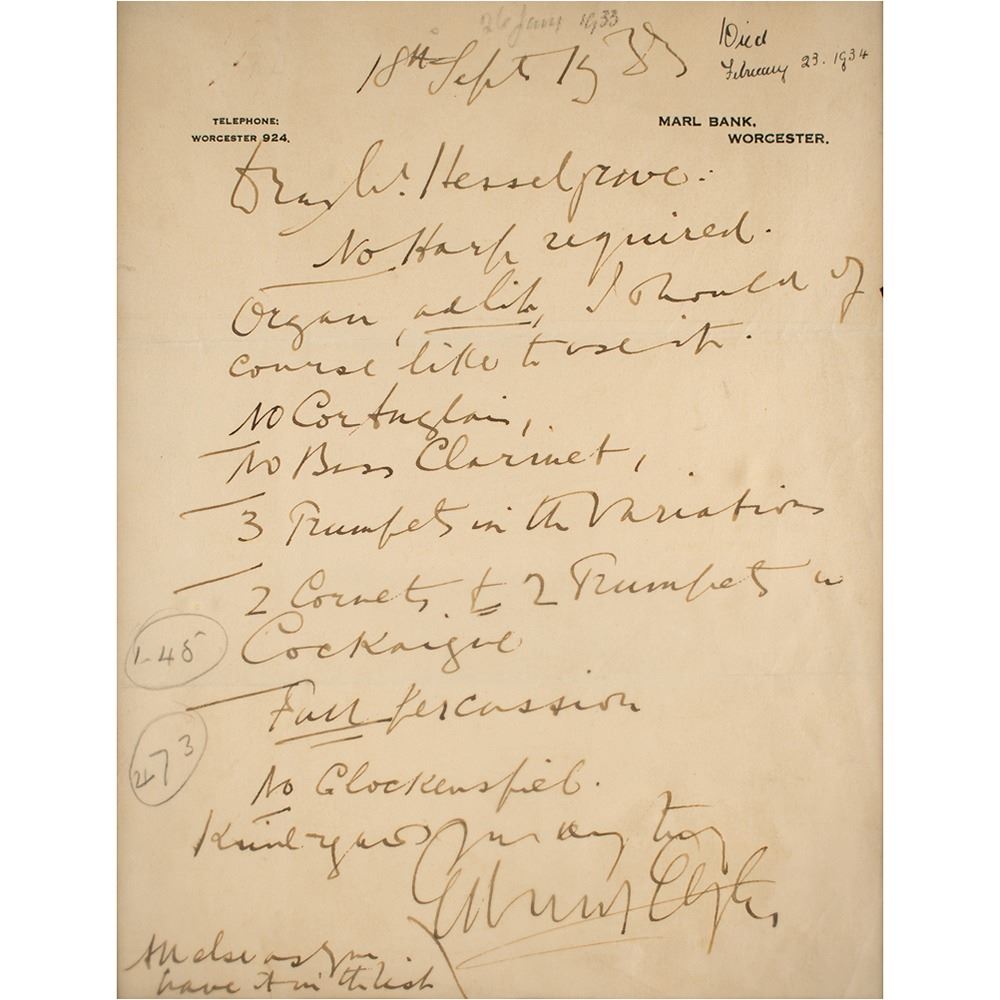 26 Jany 1933
18th Sept 1933
Died
February 23. 1934
TELEPHONE:
WORCESTER 924.
MARL BANK,
WORCESTER.
Dear Mr. Hesselgrove:
No Harp required.
Organ, ad lib, I should of
course like to use it.
No Cor Anglais,
No Bass Clarinet,
3 Trumpets in the Variations
2 Cornets & 2 Trumpets in
Cockaigne
1-45
Full percussion
473
No Glockenspiel.
Kind regards Yours very truly
Edward Elgar
All else as you
have it in the list